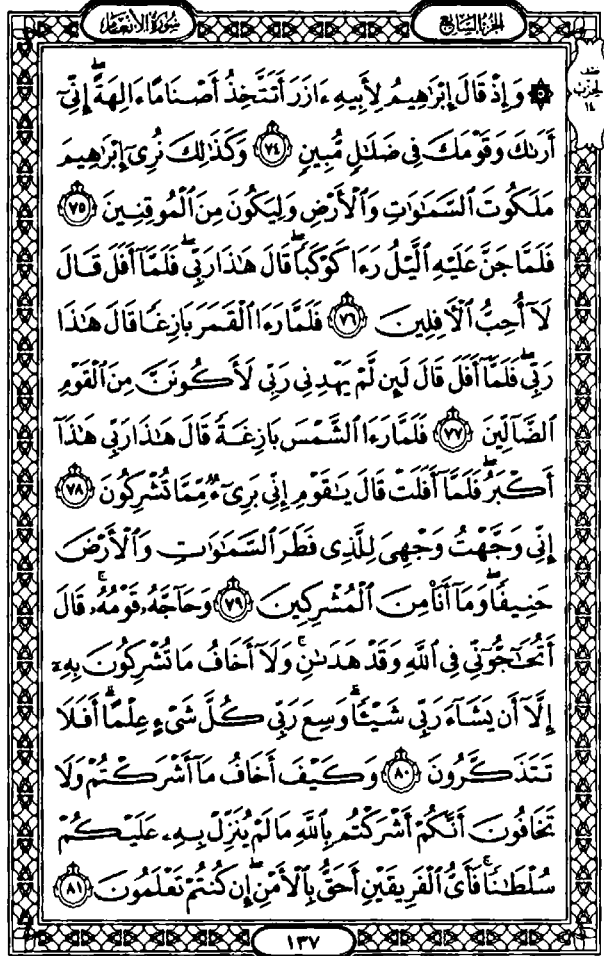 سُورَةُ الأَنْعَام
الجُزْءُ السَّابِعُ
نصف
الحزب
١٤
۞ وَإِذْ قَالَ إِبْرَٰهِيمُ لِأَبِيهِ ءَازَرَ أَتَتَّخِذُ أَصْنَامًا ءَالِهَةً ۖ إِنِّىٓ
أَرَىٰكَ وَقَوْمَكَ فِى ضَلَـٰلٍ مُّبِينٍ ﴿٧٤﴾ وَكَذَٰلِكَ نُرِىٓ إِبْرَٰهِيمَ
مَلَكُوتَ ٱلسَّمَـٰوَٰتِ وَٱلْأَرْضِ وَلِيَكُونَ مِنَ ٱلْمُوقِنِينَ ﴿٧٥﴾
فَلَمَّا جَنَّ عَلَيْهِ ٱلَّيْلُ رَءَا كَوْكَبًا ۖ قَالَ هَـٰذَا رَبِّى ۖ فَلَمَّآ أَفَلَ قَالَ
لَآ أُحِبُّ ٱلْـَٔافِلِينَ ﴿٧٦﴾ فَلَمَّا رَءَا ٱلْقَمَرَ بَازِغًا قَالَ هَـٰذَا
رَبِّى ۖ فَلَمَّآ أَفَلَ قَالَ لَئِن لَّمْ يَهْدِنِى رَبِّى لَأَكُونَنَّ مِنَ ٱلْقَوْمِ
ٱلضَّآلِّينَ ﴿٧٧﴾ فَلَمَّا رَءَا ٱلشَّمْسَ بَازِغَةً قَالَ هَـٰذَا رَبِّى هَـٰذَآ
أَكْبَرُ ۖ فَلَمَّآ أَفَلَتْ قَالَ يَـٰقَوْمِ إِنِّى بَرِىٓءٌ مِّمَّا تُشْرِكُونَ ﴿٧٨﴾
إِنِّى وَجَّهْتُ وَجْهِىَ لِلَّذِى فَطَرَ ٱلسَّمَـٰوَٰتِ وَٱلْأَرْضَ
حَنِيفًا ۖ وَمَآ أَنَا۠ مِنَ ٱلْمُشْرِكِينَ ﴿٧٩﴾ وَحَآجَّهُۥ قَوْمُهُۥ ۚ قَالَ
أَتُحَـٰٓجُّوٓنِّى فِى ٱللَّهِ وَقَدْ هَدَىٰنِ ۚ وَلَآ أَخَافُ مَا تُشْرِكُونَ بِهِۦٓ
إِلَّآ أَن يَشَآءَ رَبِّى شَيْـًٔا ۗ وَسِعَ رَبِّى كُلَّ شَىْءٍ عِلْمًا ۗ أَفَلَا
تَتَذَكَّرُونَ ﴿٨٠﴾ وَكَيْفَ أَخَافُ مَآ أَشْرَكْتُمْ وَلَا
تَخَافُونَ أَنَّكُمْ أَشْرَكْتُم بِٱللَّهِ مَا لَمْ يُنَزِّلْ بِهِۦ عَلَيْكُمْ
سُلْطَـٰنًا ۚ فَأَىُّ ٱلْفَرِيقَيْنِ أَحَقُّ بِٱلْأَمْنِ ۖ إِن كُنتُمْ تَعْلَمُونَ ﴿٨١﴾
١٣٧